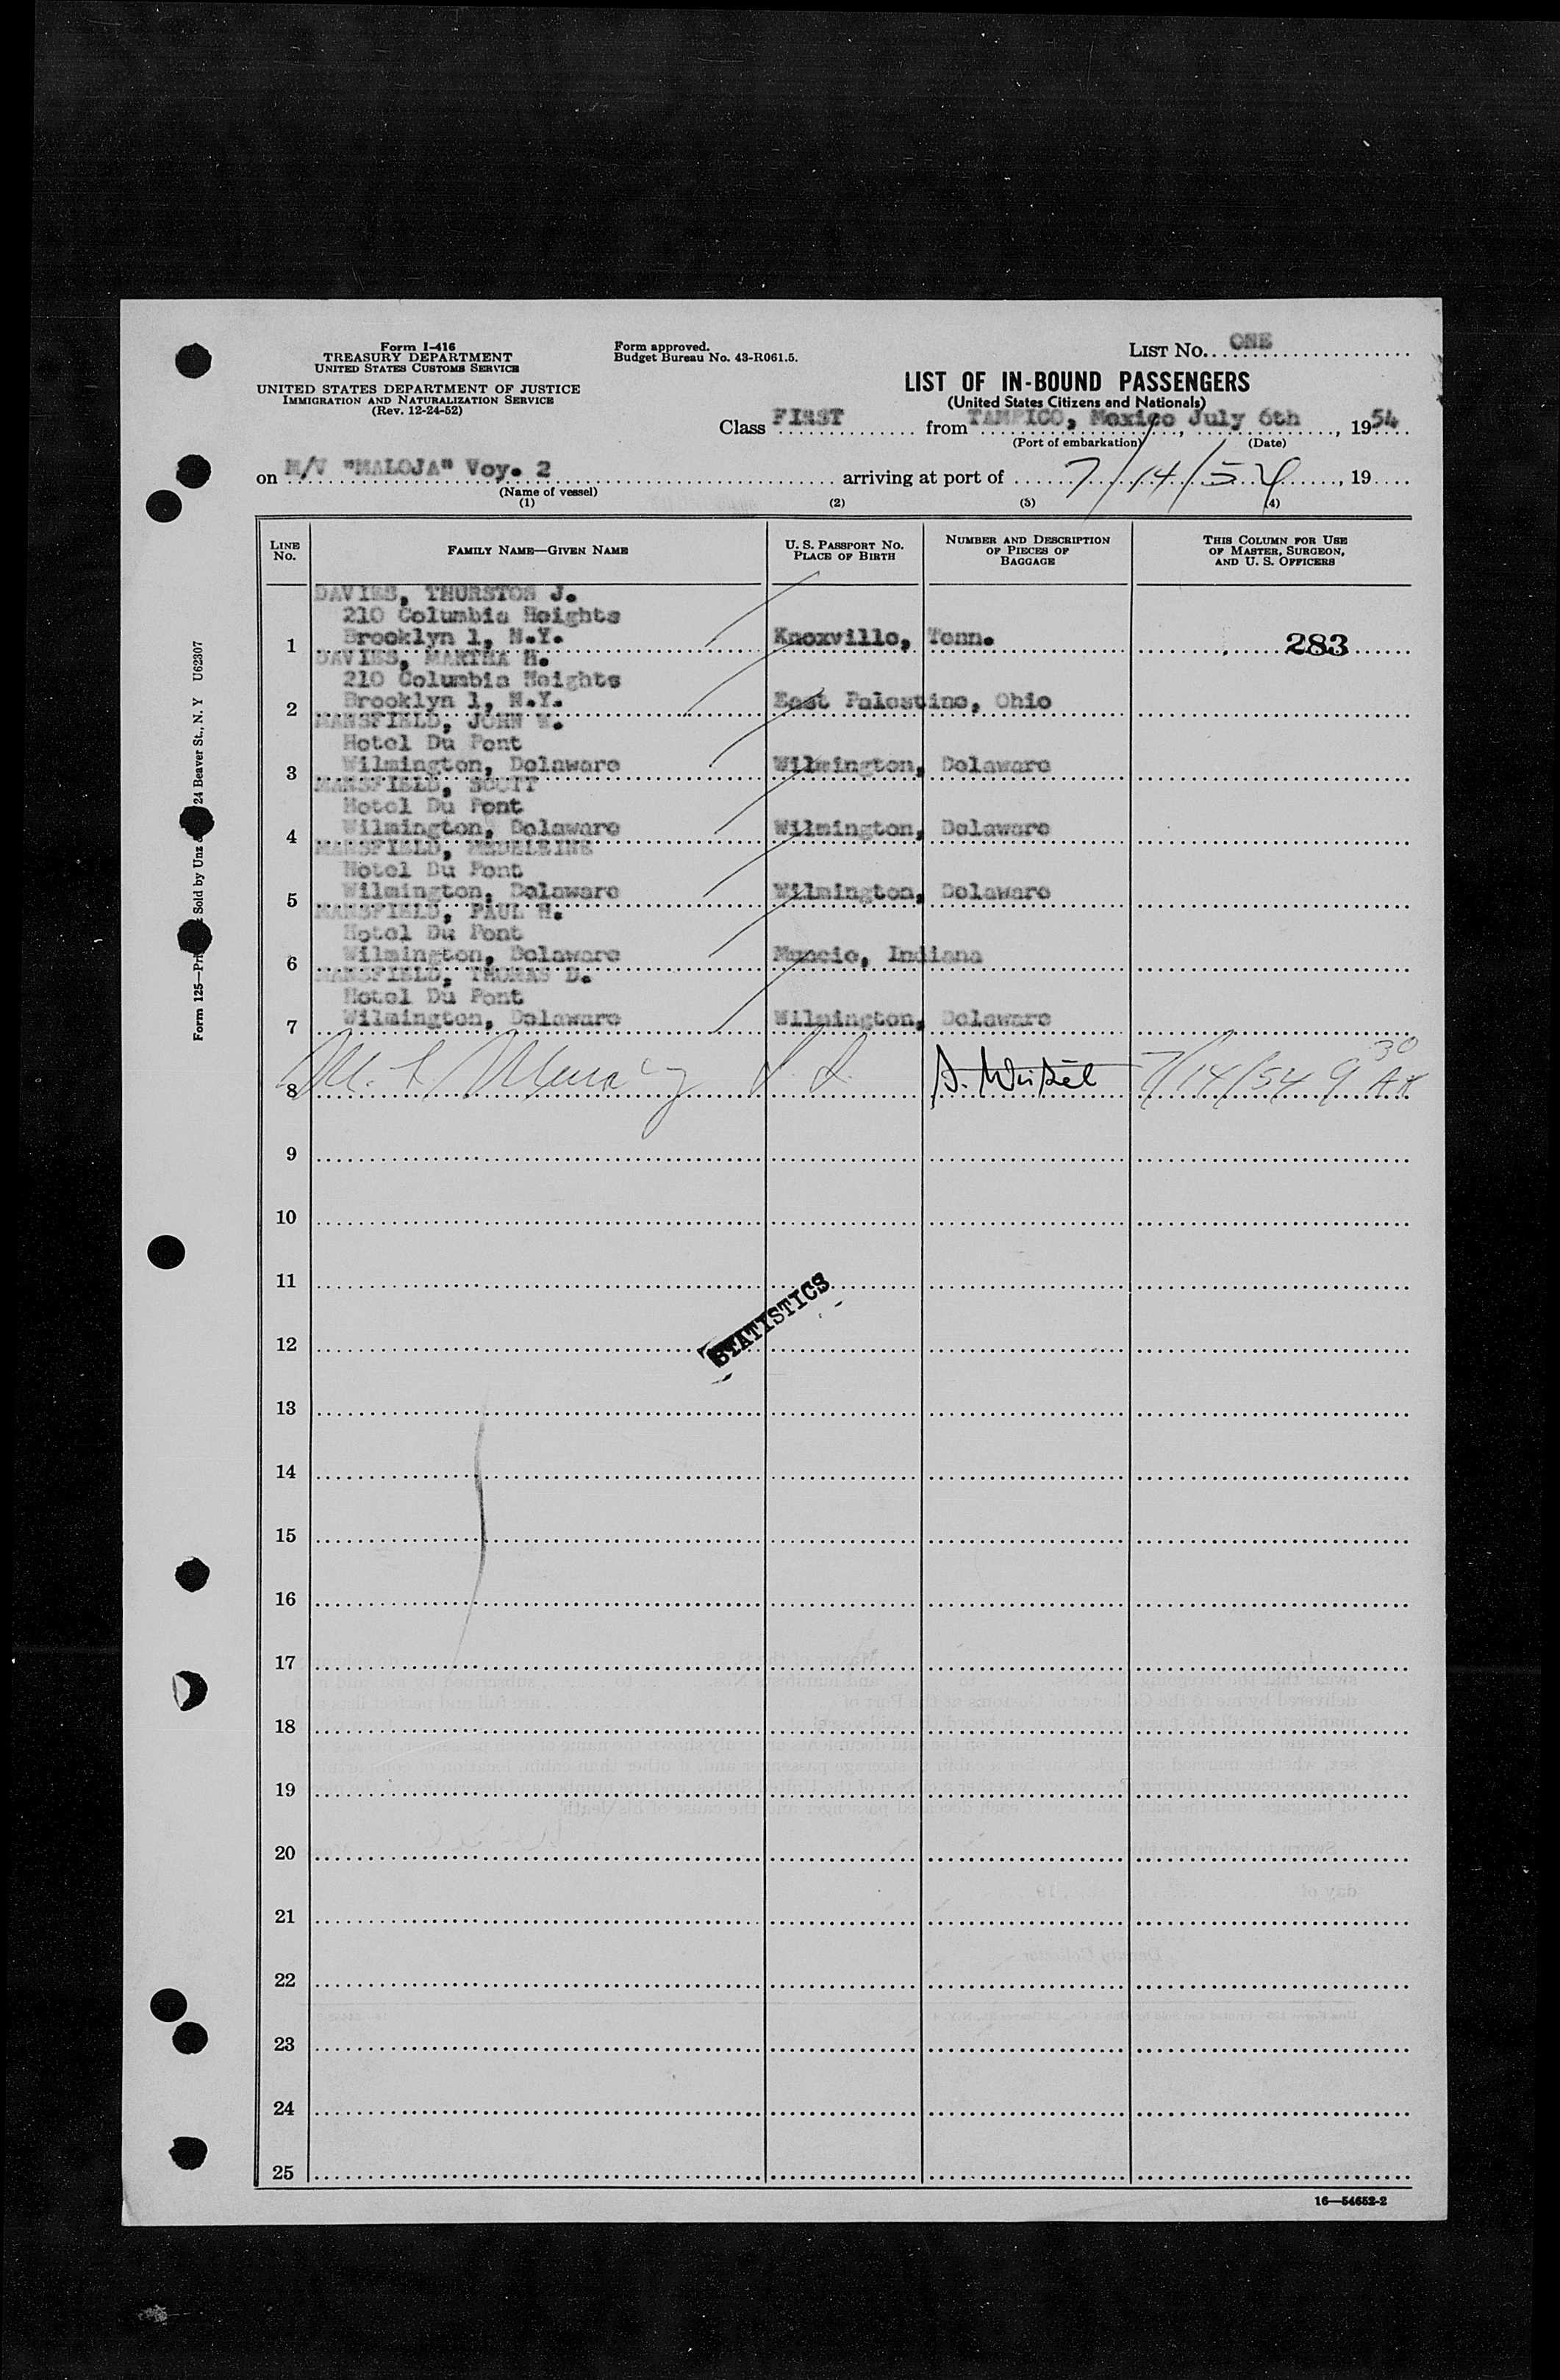 Form I-416
TREASURY DEPARTMENT
UNITED STATES CUSTOMS SERVICE
UNITED STATES DEPARTMENT OF JUSTICE
IMMIGRATION AND NATURALIZATION SERVICE
(Rev. 12-24-52)
Form approved.
Budget Bureau No. 43-R061.5.
LIST NO. ONE
LIST OF IN-BOUND PASSENGERS
(United States Citizens and Nationals)
Class FIRST from TAMPICO, Mexico, July 6th, 1954
(Port of embarkation) (Date)
on M/V "MALOJA" Voy. 2 arriving at port of 7/14/54, 19
(Name of vessel)
(1) (2) (3) (4)
LINE NO. FAMILY NAME—GIVEN NAME U. S. PASSPORT NO. PLACE OF BIRTH NUMBER AND DESCRIPTION OF PIECES OF BAGGAGE THIS COLUMN FOR USE OF MASTER, SURGEON, AND U. S. OFFICERS
DAVIES, THURSTON J.
210 Columbia Heights
1 Brooklyn 1, N.Y. Knoxville, Tenn. 283
DAVIES, MARTHA H.
210 Columbia Heights
2 Brooklyn 1, N.Y. East Palestine, Ohio
MANSFIELD, JOHN W.
Hotel Du Pont
3 Wilmington, Delaware Wilmington, Delaware
MANSFIELD, SCOTT
Hotel Du Pont
4 Wilmington, Delaware Wilmington, Delaware
MANSFIELD, MADELEINE
Hotel Du Pont
5 Wilmington, Delaware Wilmington, Delaware
MANSFIELD, PAUL H.
Hotel Du Pont
6 Wilmington, Delaware Muncie, Indiana
MANSFIELD, THOMAS D.
Hotel Du Pont
7 Wilmington, Delaware Wilmington, Delaware
8 7/14/54 9 30 AM
9
10
11
12
STATISTICS
13
14
15
16
17
18
19
20
21
22
23
24
25
16—54652-2
Form 125— Sold by Unz 24 Beaver St., N. Y U62307